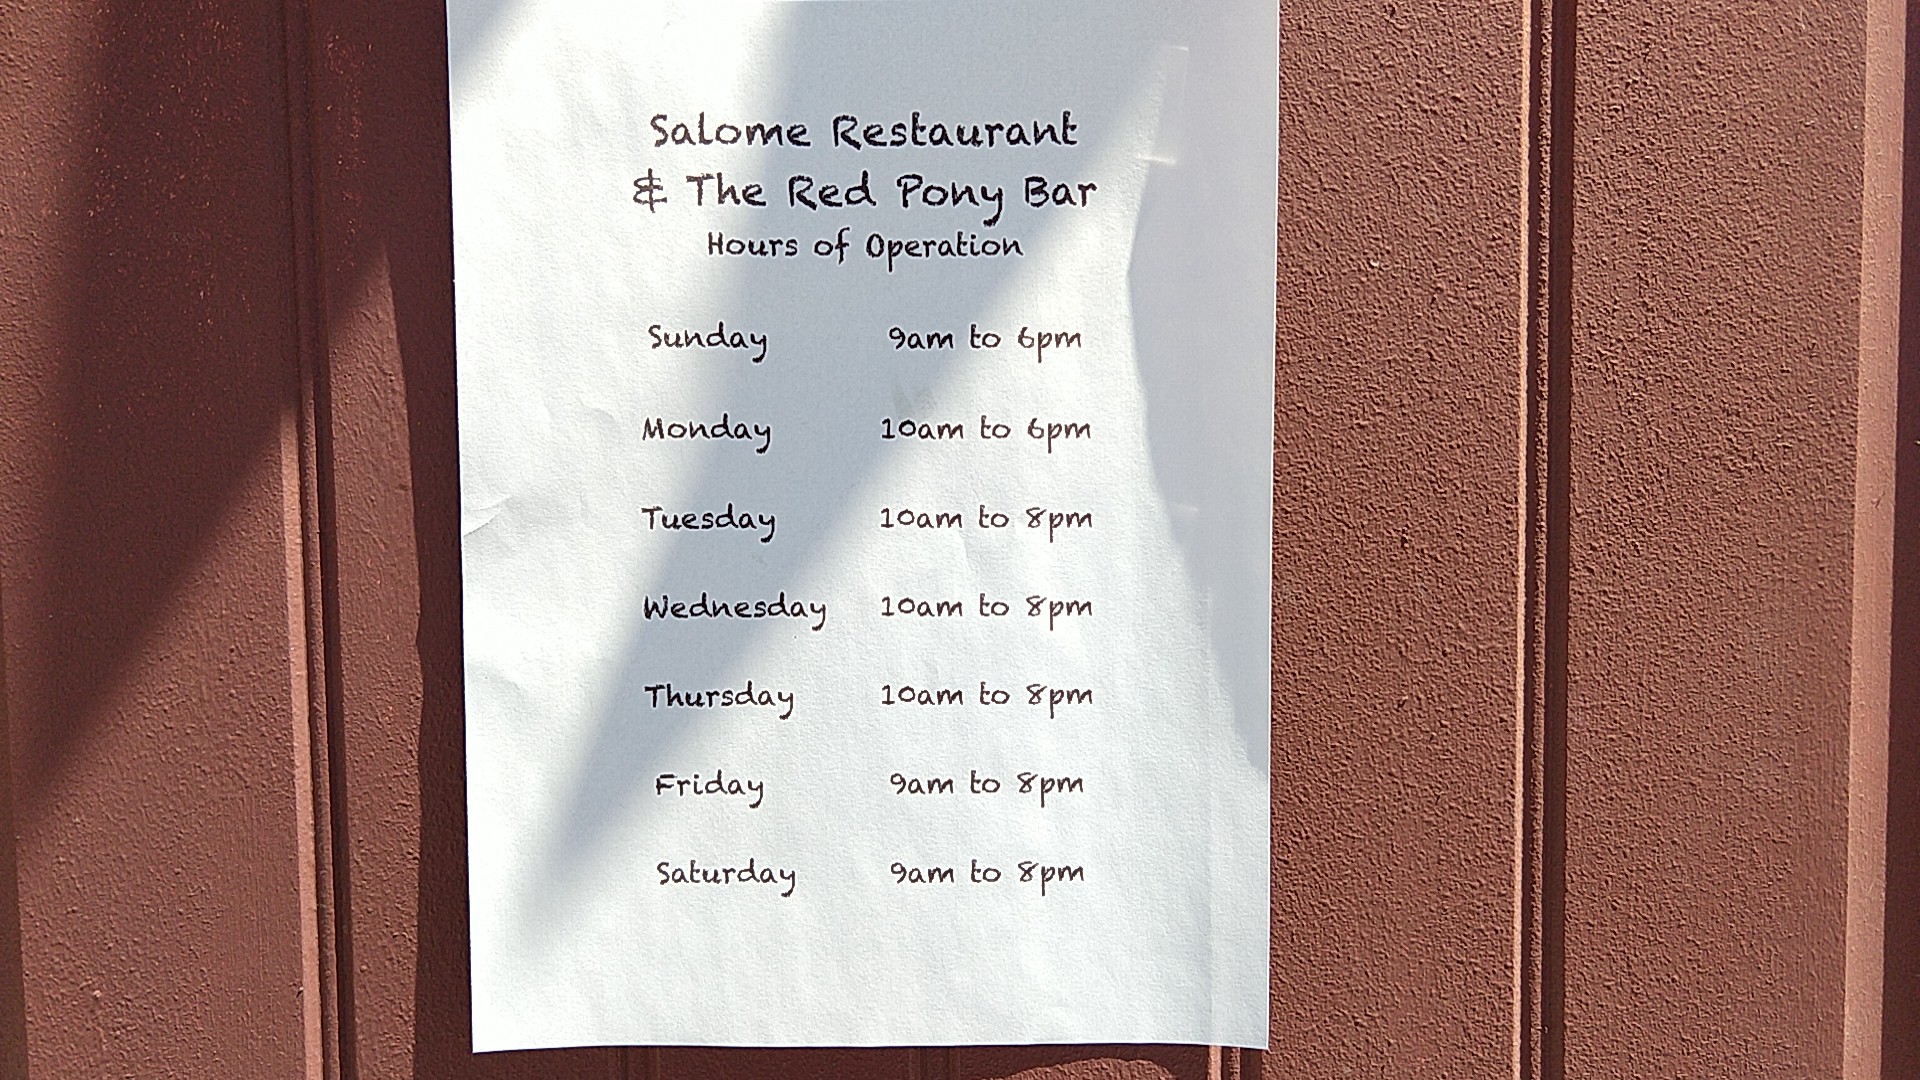 Salome Restaurant
& The Red Pony Bar
Hours of Operation
Sunday 9am to 6pm
Monday 10am to 6pm
Tuesday 10am to 8pm
Wednesday 10am to 8pm
Thursday 10am to 8pm
Friday 9am to 8pm
Saturday 9am to 8pm